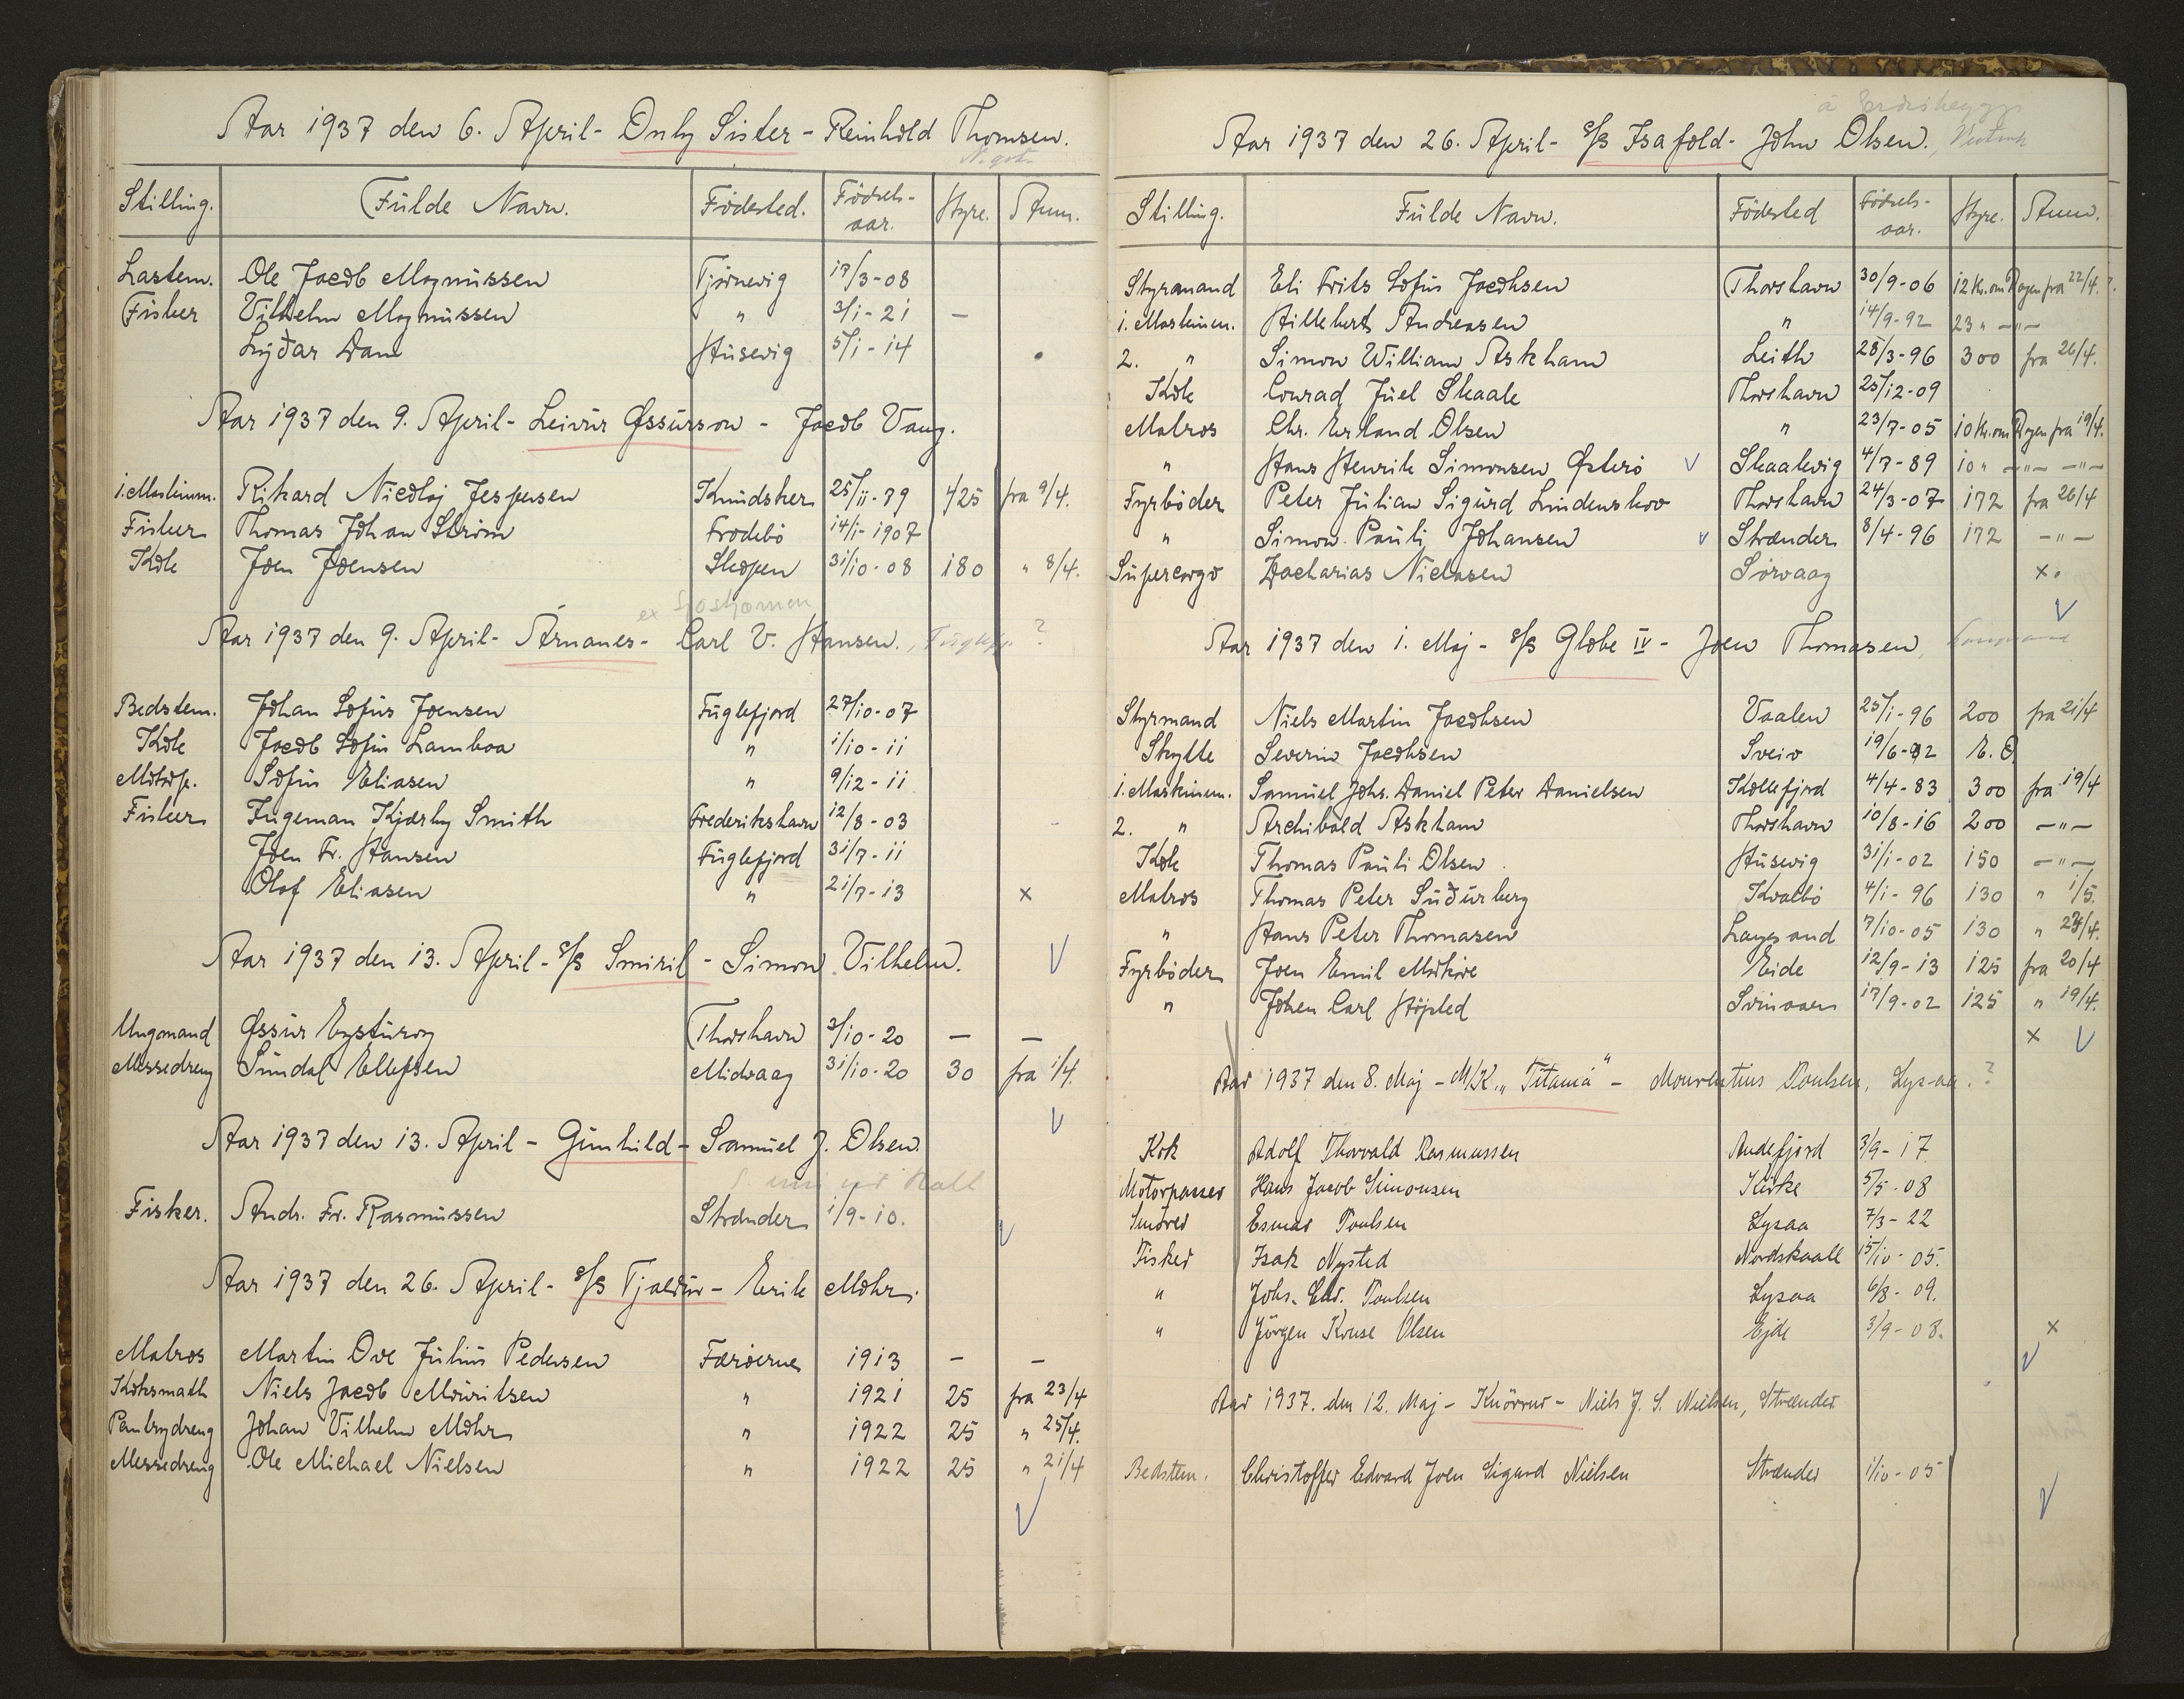 Aar 1937 den 6. April - Only Sister - Reinhold Thomsen.
Stilling. Fulde Navn. Födested. Födsels-aar. Hyre. Anm.
Lastem. Ole Jacob Magnussen Tjörnevig 17/3-08
Fisker Vilhelm Magnussen " 3/1-21 —
Lýðar Dam Husevig 5/1-14
Aar 1937 den 9. April - Leivur Øssursson - Jacob Vang.
1. Maskinm. Rikard Nicolaj Jespersen Knudsker 25/11-79 425 fra 9/4.
Fisker Thomas Johan Ström Frodebö 14/1-1907
Kok Joen Joensen Skopen 31/10-08 180 " 8/4.
Aar 1937 den 9. April - Árnanes - Carl V. Hansen., Fuglefj. ?
Bedstem. Johan Sofus Joensen Fuglefjord 27/10-07
Kok Jacob Sofus Lamhoa " 1/10-11
Motorp. Sofus Eliasen " 9/12-11
Fisker Ingeman Kjærby Smith Frederikshavn 12/8-03
Joen Fr. Hansen Fuglefjord 31/7-11
Olaf Eliasen " 21/7-13 x
Aar 1937 den 13. April - s/s Smiril - Simon Vilhelm.
Ungmand Øssur Eysturoy Thorshavn 2/10-20 — —
Messedreng Sundal Ellefsen Midvaag 31/10-20 30 fra 1/4.
Aar 1937 den 13. April - Gunhild - Samuel J. Olsen.
Fisker. Andr. Fr. Rasmussen Strænder 1/9-10.
Aar 1937 den 26. April - s/s Tjaldur - Erik Mohr.
Matros Martin Ove Julius Pedersen Færöerne 1913 — —
Koksmath Niels Jacob Mouritsen " 1921 25 fra 23/4
Pantrydreng Johan Vilhelm Mohr " 1922 25 " 25/4.
Messedreng Ole Michael Nielsen " 1922 25 " 21/4
Aar 1937 den 26. April - s/s Isafold - John Olsen.
Stilling. Fulde Navn. Födested Födsels-aar. Hyre. Anm.
Styrmand Eli Frits Sofus Jacobsen Thorshavn 30/9-06 12 Kr. om Dagen fra 22/4.
1. Maskinm. Hillebert Andreasen " 14/9-92 23 " —"—
2. " Simon William Askham Leith 28/3-96 300 fra 26/4.
Kok Conrad Juel Skaale Thorshavn 25/12-09
Matros Chr. Erland Olsen " 23/7-05 10 Kr. om Dagen fra 19/4.
" Hans Henrik Simonsen Østerö Skaalevig 4/7-89 10 " —"— —"—
Fyrböder Peter Julian Sigurd Lindenskov Thorshavn 24/3-07 172 fra 26/4
" Simon Pauli Johansen Strænder 8/4-96 172 —"—
Supercargo Zacharias Niclasen Sörvaag x.
Aar 1937 den 1. Maj - s/s Globe IV - Joen Thomasen,
Styrmand Niels Martin Jacobsen Vaalen 25/1-96 200 fra 21/4
Skytte Severin Jacobsen Sveio 19/6-92 E. O.
1. Maskinm. Samuel Johs. Daniel Peter Danielsen Kollefjord 4/4-83 300 fra 19/4
2. " Archibald Askham Thorshavn 10/8-16 200 —"—
Kok Thomas Pauli Olsen Husevig 31/1-02 150 —"—
Matros Thomas Peter Suðurberg Kvalbö 4/1-96 130 " 1/5.
" Hans Peter Thomasen Langesand 7/10-05 130 " 24/4.
Fyrböder Joen Emil Morköre Eide 12/9-13 125 fra 20/4
" Johen Carl Höjsted Svinaaer 17/9-02 125 " 19/4.
x
Aar 1937 den 8. Maj - M/K. "Titania" - Mourentius Poulsen, Lysaa. ?
Kok Adolf Thorvald Rasmussen Andefjord 3/9-17
Motorpasser Hans Jacob Simonsen Kirke 5/5-08
Smörer Esmar Poulsen Lysaa 7/3-22
Fisker Isak Nysted Nordskaale 15/10-05.
" Johs. Edv. Poulsen Lysaa 6/8-09.
" Jörgen Kruse Olsen Ejde 3/9-08. x
Aar 1937. den 12. Maj - Knörrur - Niels J. S. Nielsen, Strænder
Bedstem. Christoffer Edvard Joen Sigurd Nielsen Strænder 1/10-05